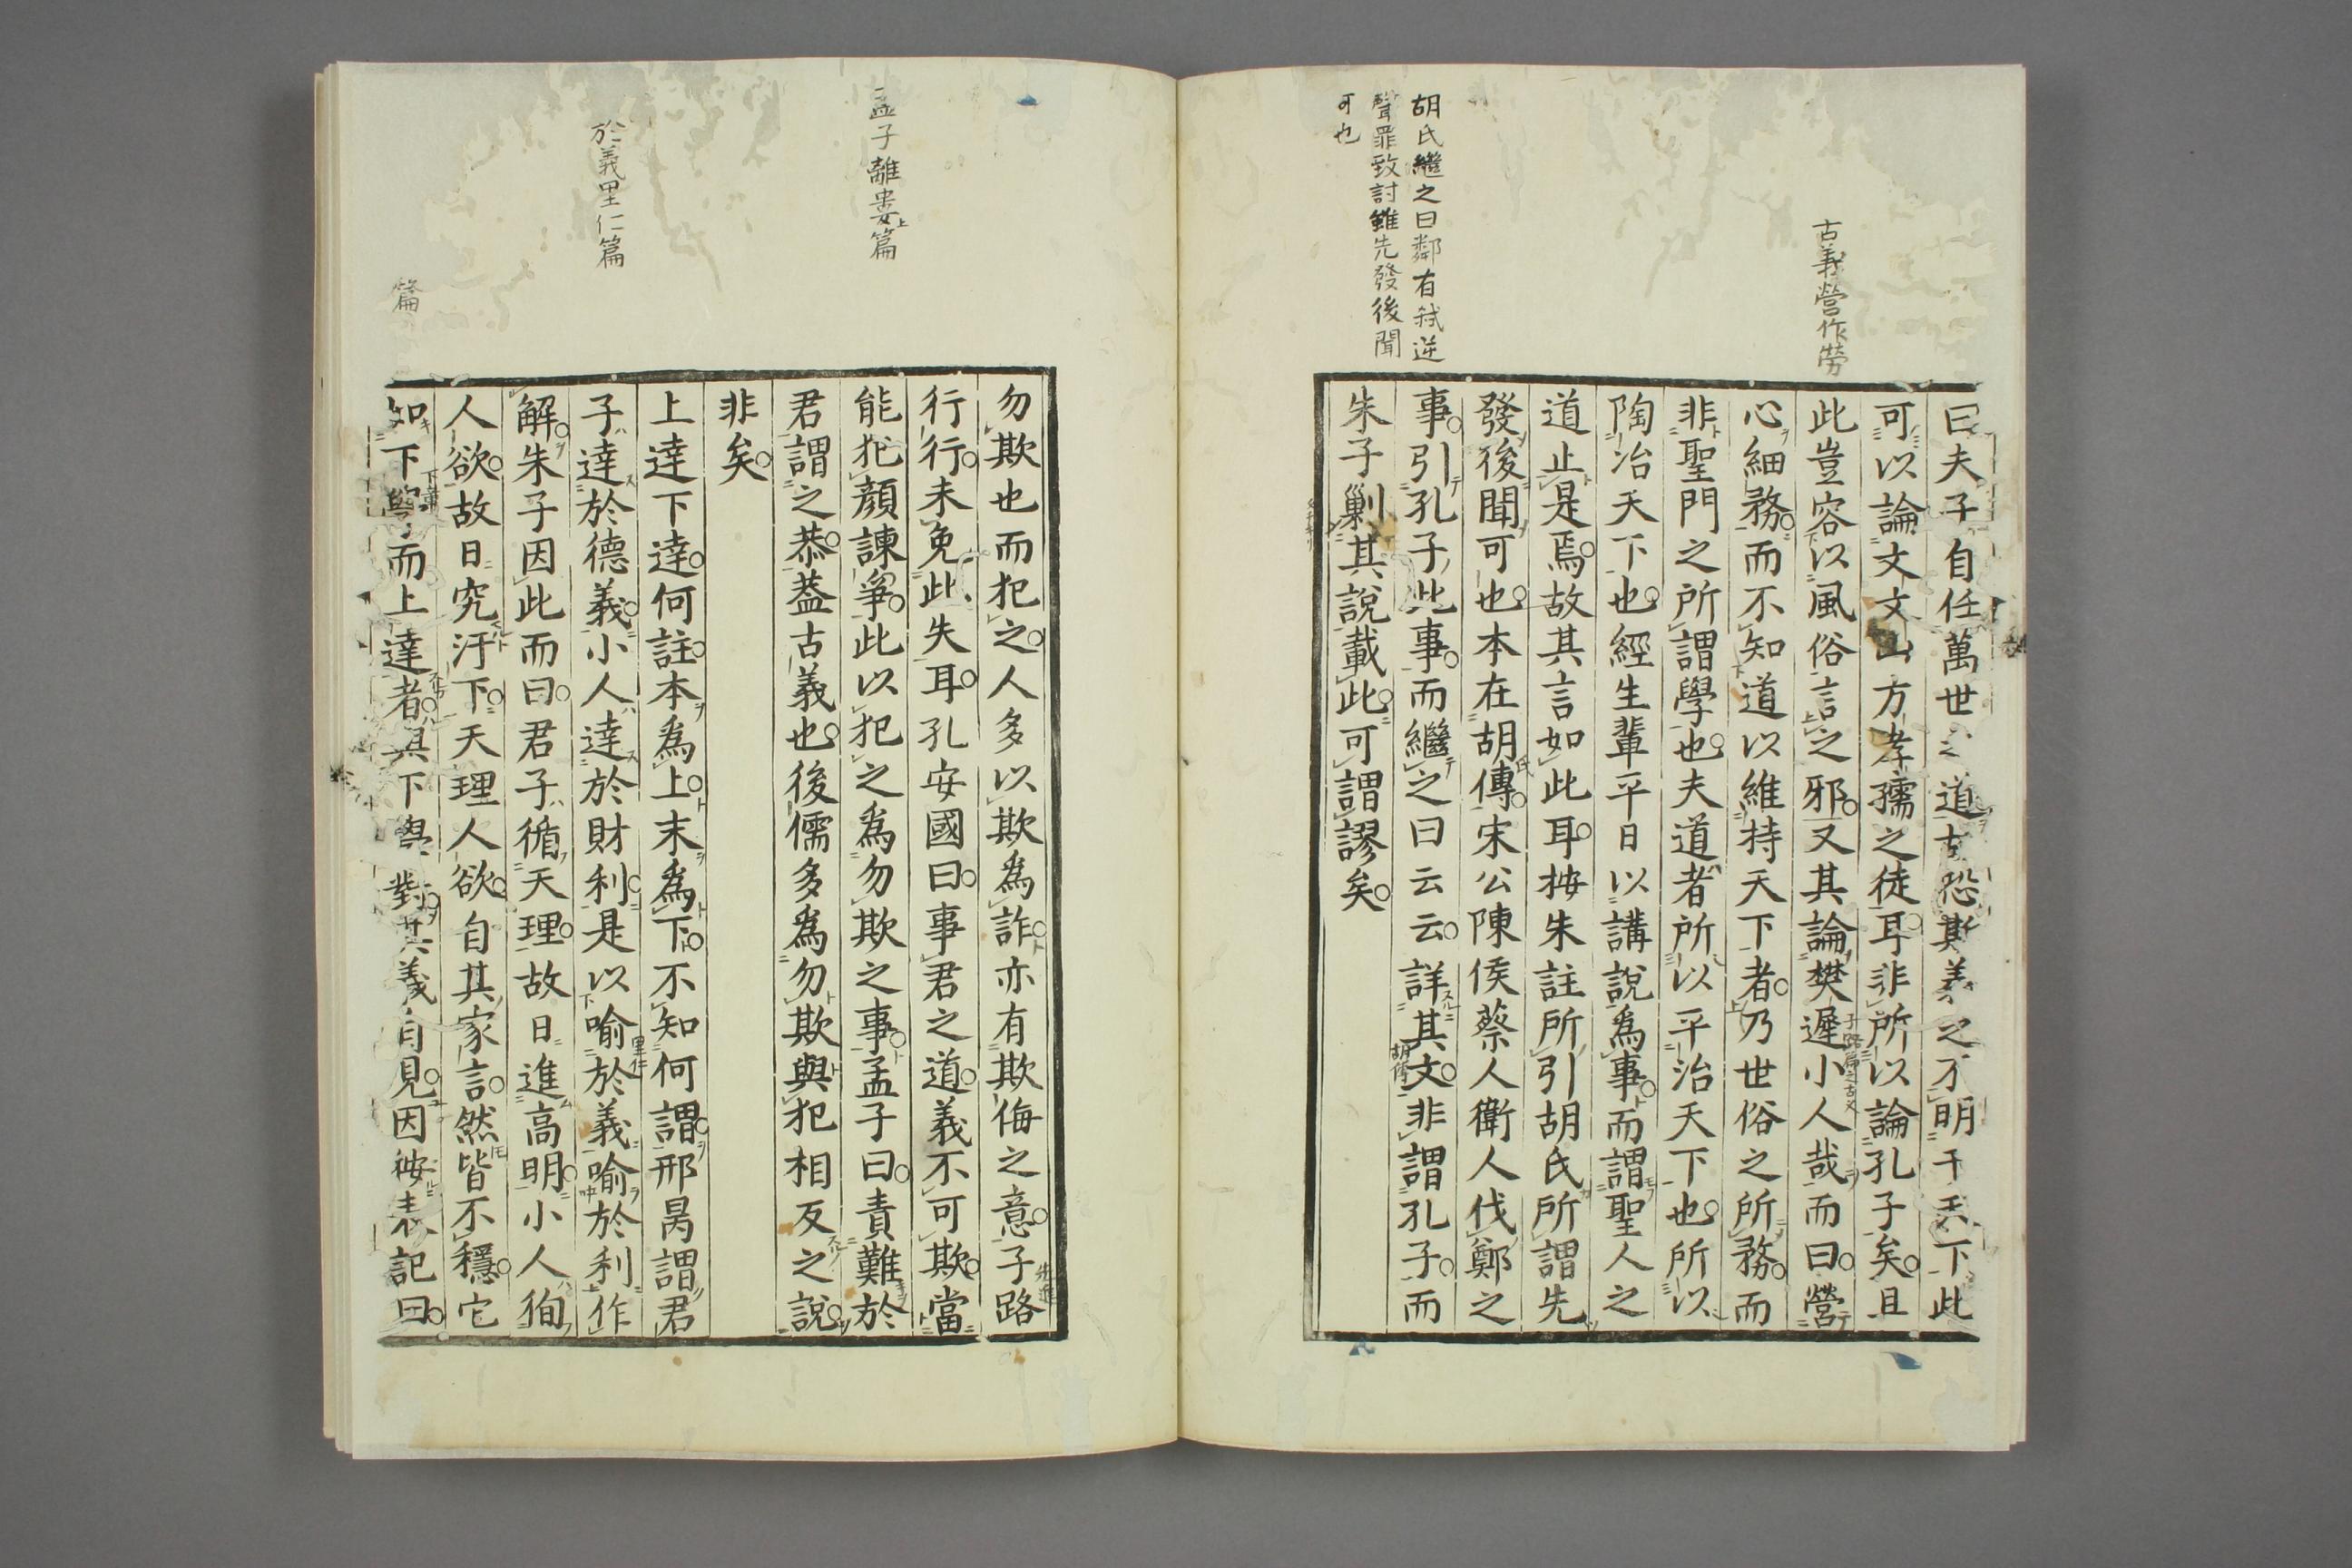 古義營作勞
胡氏繼之曰鄰有弑逆
聲罪致討雖先發後聞
可也
曰夫子自任萬世之道古恐斯義之不明于天下此
可以論文文山方孝孺之徒耳非所以論孔子矣且
此豈容以風俗言之邪又其論樊遲小人哉而曰營
心細務而不知道以維持天下者乃世俗之所務而
非聖門之所謂學也夫道者所以平治天下也所以
陶冶天下也經生輩平日以講說爲事而謂聖人之
道止是焉故其言如此耳按朱註所引胡氏所謂先
發後聞可也本在胡傳宋公陳侯蔡人衛人伐鄭之
事引孔子此事而繼之曰云云詳其文非謂孔子而
朱子勦其說載此可謂謬矣
孟子離婁上篇
於義里仁篇
篇
勿欺也而犯之人多以欺爲詐亦有欺侮之意子路
行行未免此失耳孔安國曰事君之道義不可欺當
能犯顏諫爭此以犯之爲勿欺之事孟子曰責難於
君謂之恭蓋古義也後儒多爲勿欺與犯相反之說
非矣
上達下達何註本爲上末爲下不知何謂邢昺謂君
子達於德義小人達於財利是以喻於義喻於利作
解朱子因此而曰君子循天理故日進高明小人徇
人欲故日究汙下天理人欲自其家言然皆不穩它
如下學而上達者與下學對其義自見因按表記曰